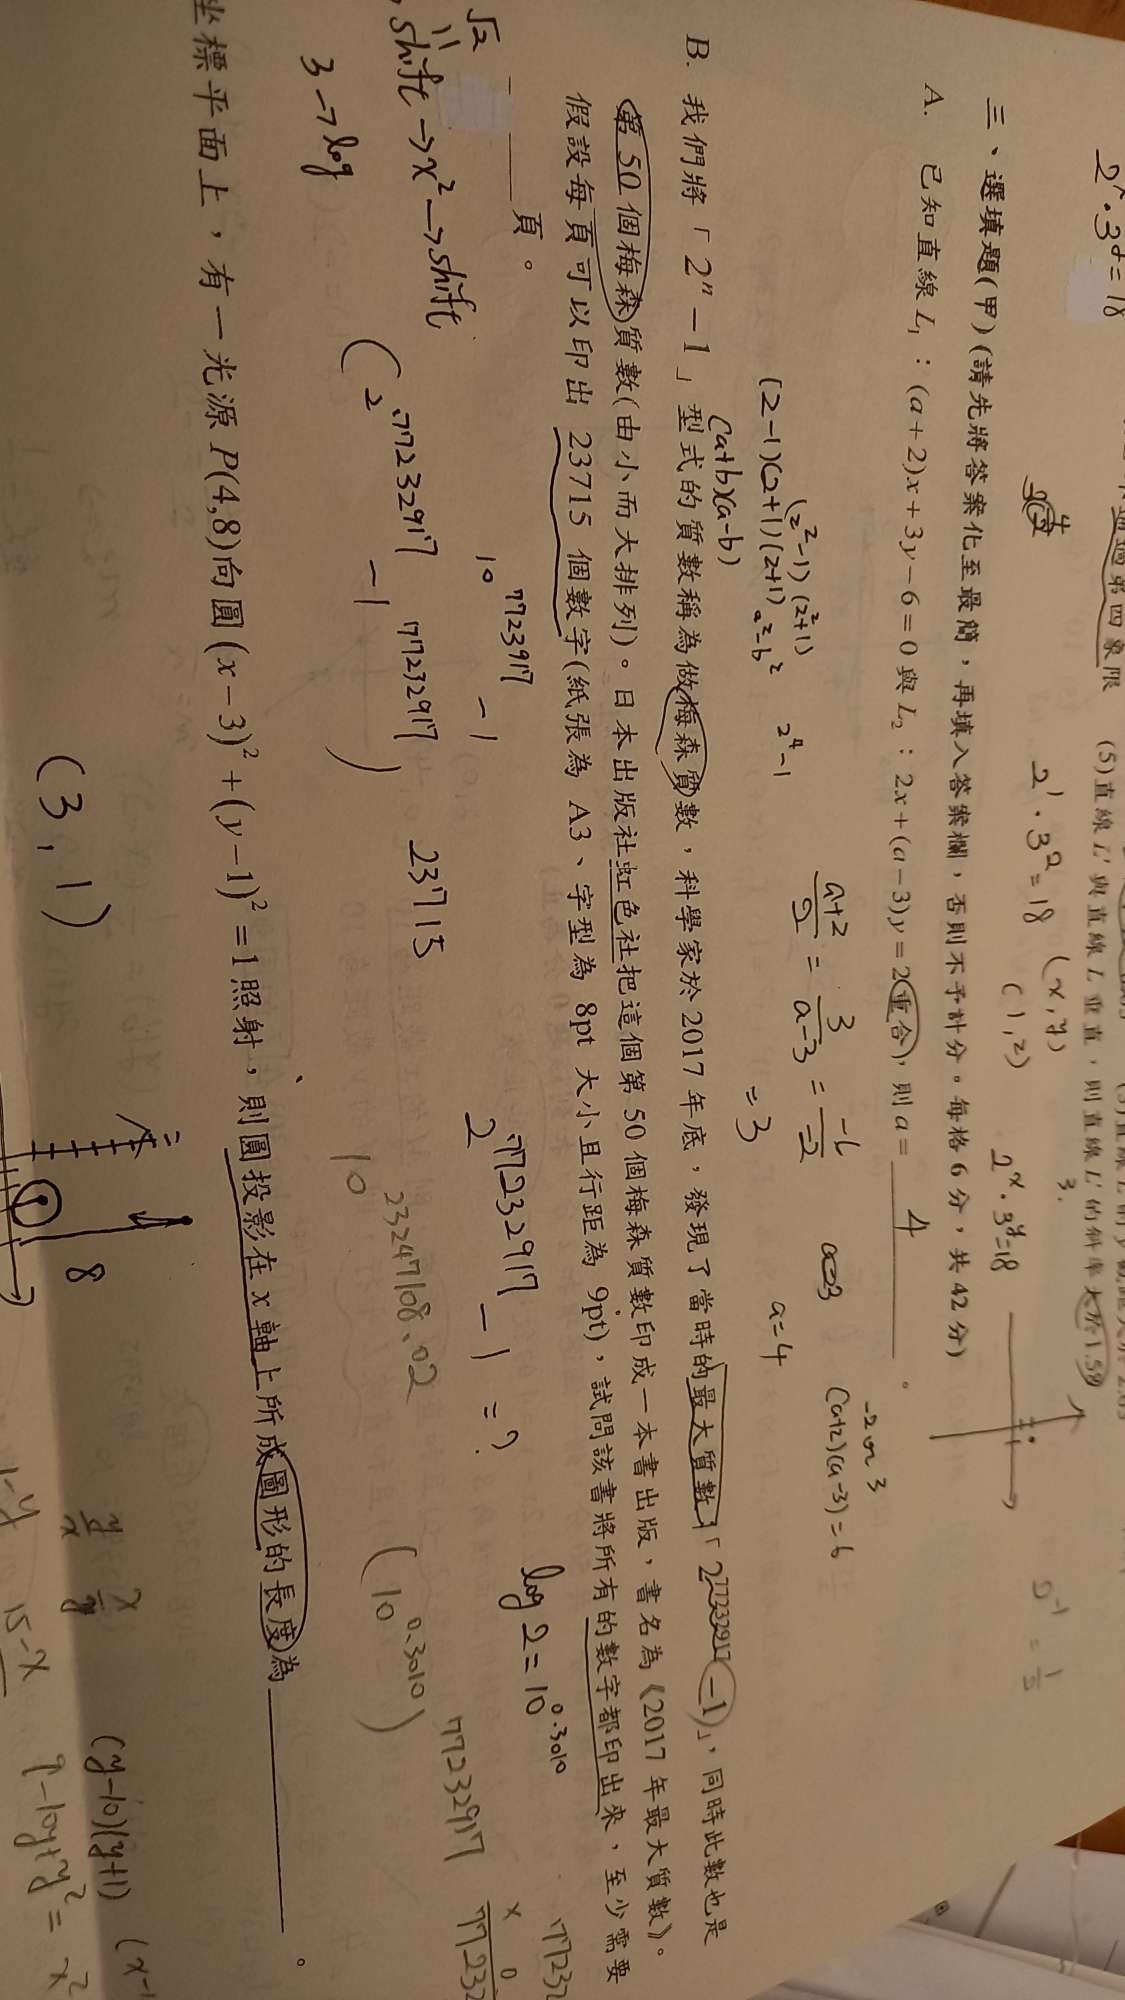 2^x · 3^y = 18
通過第四象限
(5)直線 L' 與直線 L 垂直，則直線 L' 的斜率大於 1.59
2^1 · 3^2 = 18
(x, y)
(1, 2)
2^x · 3^y = 18
3.
三、選填題(甲)(請先將答案化至最簡，再填入答案欄，否則不予計分。每格 6 分，共 42 分)
A. 已知直線 L₁：(a+2)x+3y−6=0 與 L₂：2x+(a−3)y=2 重合，則 a = 4 。
(a+2)/2 = 3/(a−3) = −6/−2
= 3
a=4
-2 or 3
(a+2)(a-3) = 6
(2²-1)(2²+1)
(2-1)(2+1)(2²+1)
a²-b²
(a+b)(a-b)
2⁴-1
B. 我們將「2ⁿ−1」型式的質數稱為做梅森質數，科學家於 2017 年底，發現了當時的最大質數「2^77232917 −1」，同時此數也是
第 50 個梅森質數(由小而大排列)。日本出版社虹色社把這個第 50 個梅森質數印成一本書出版，書名為《2017 年最大質數》。
假設每頁可以印出 23715 個數字(紙張為 A3、字型為 8pt 大小且行距為 9pt)，試問該書將所有的數字都印出來，至少需要
______頁。
10^7723917 - 1
2^77232917 - 1 = ?
log 2 = 10^0.3010
√2
=
shift → x² → shift
3 → log
(2^77232917 - 1
77232917)
23715
10^23247108.02
(10^0.3010)^77232917
77232
× 0
77232
坐標平面上，有一光源 P(4,8)向圓 (x−3)²+(y−1)²=1 照射，則圓投影在 x 軸上所成圖形的長度為______。
(3, 1)
8
y/x
x/y
(y-10)(y+1)
1-y
15-x
9-10y+y² = x²